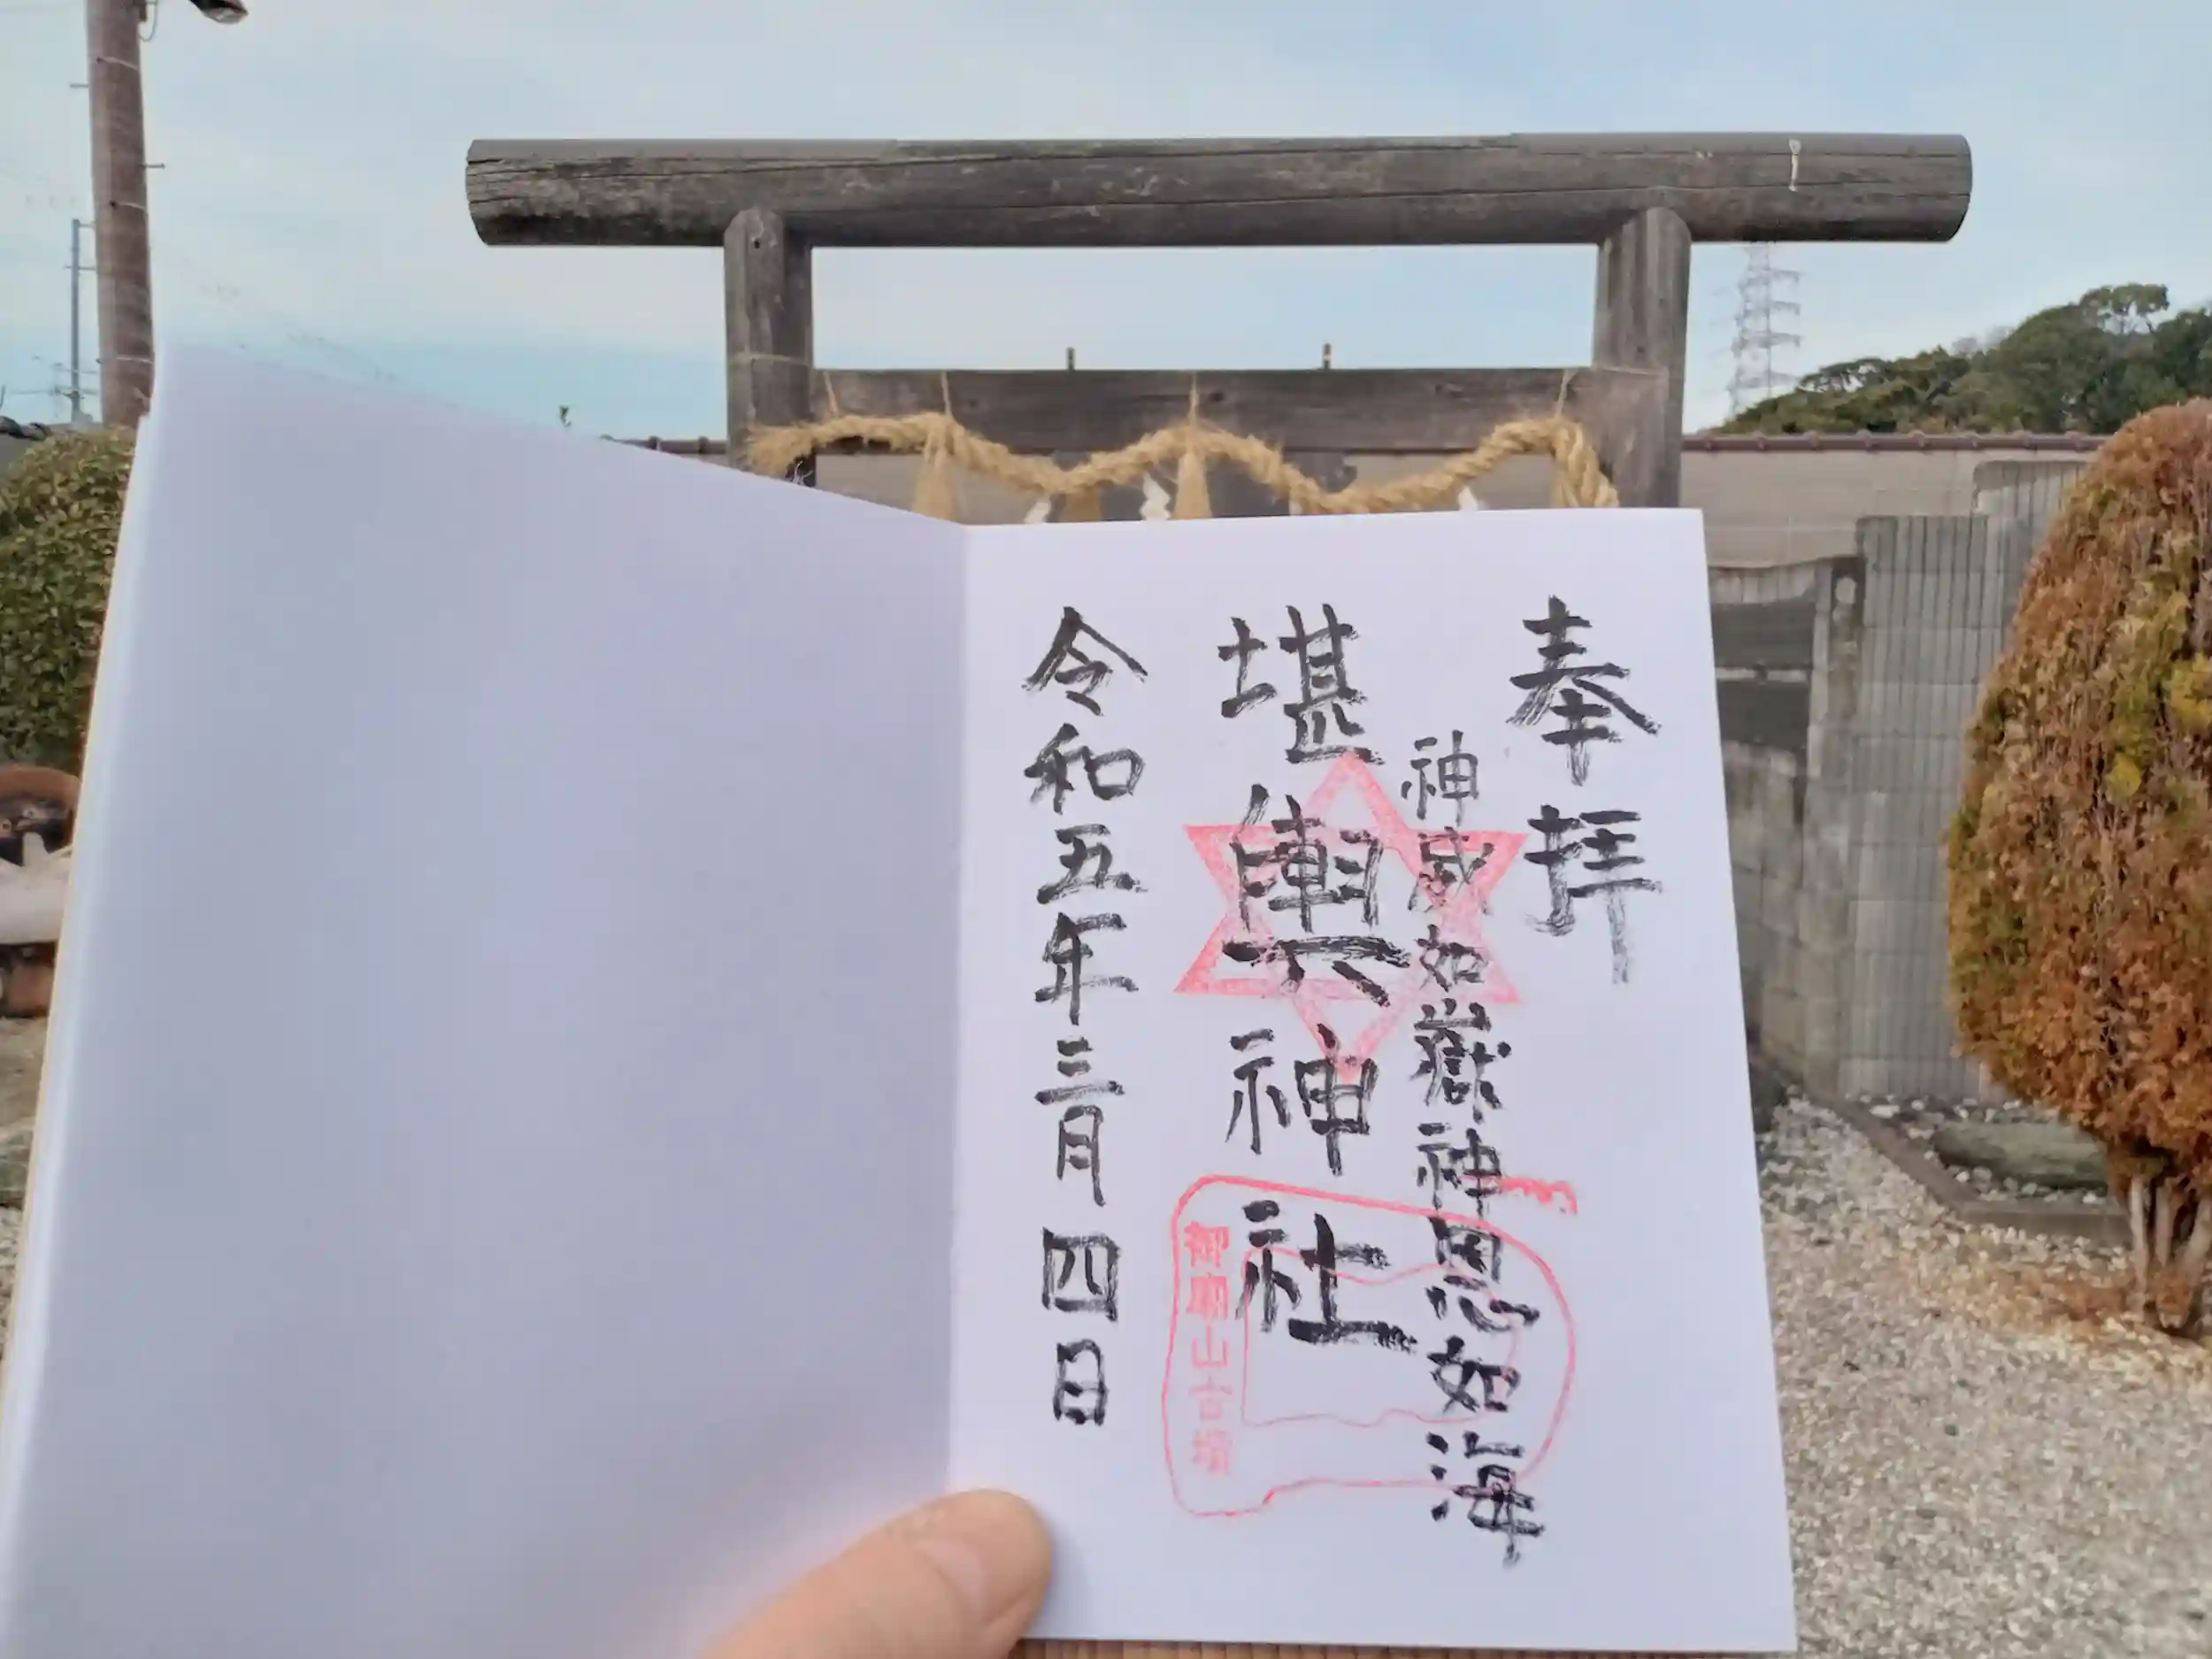 奉拝
神威如嶽神恩如海
堪輿神社
御廟山古墳
令和五年三月四日